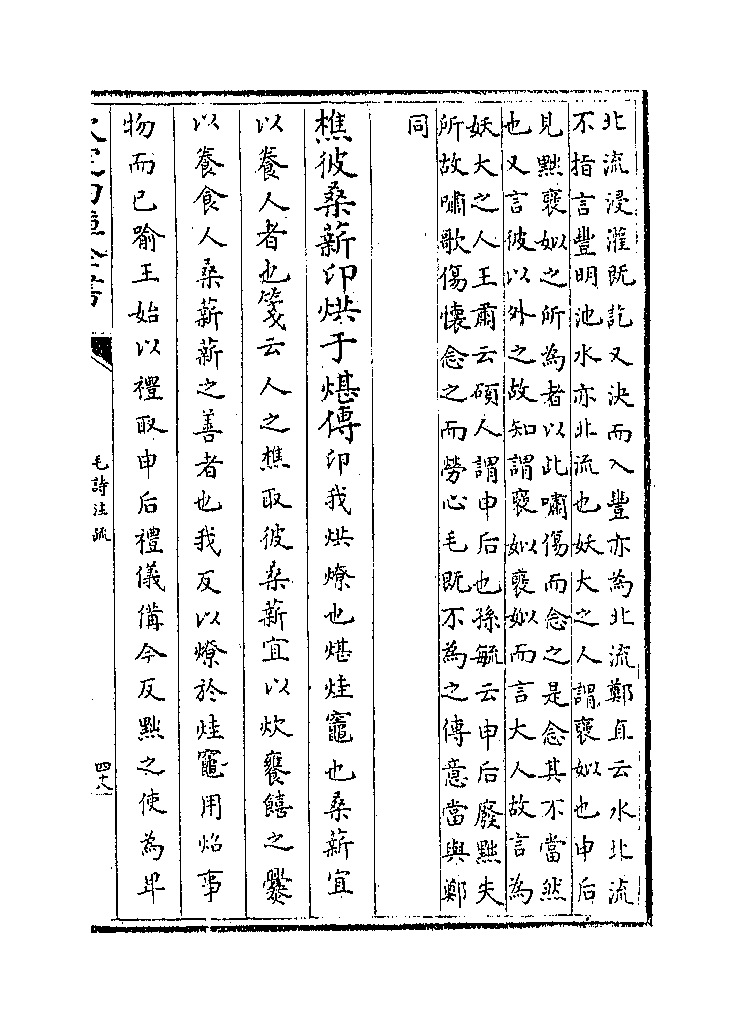 北流浸灌既訖又決而入豐亦為北流鄭直云水北流
不指言豐明池水亦北流也妖大之人謂襃姒也申后
見黜襃姒之所為者以此嘯傷而念之是念其不當然
也又言彼以外之故知謂襃姒襃姒而言大人故言為
妖大之人王肅云碩人謂申后也孫毓云申后廢黜失
所故嘯歌傷懷念之而勞心毛既不為之傳意當與鄭
同
樵彼桑薪卬烘于煁傳卬我烘燎也煁烓竈也桑薪宜
以養人者也箋云人之樵取彼桑薪宜以炊饔饎之爨
以養食人桑薪薪之善者也我反以燎於烓竈用炤事
物而已喻王始以禮取申后禮儀備今反黜之使為卑
毛詩注疏
四十八